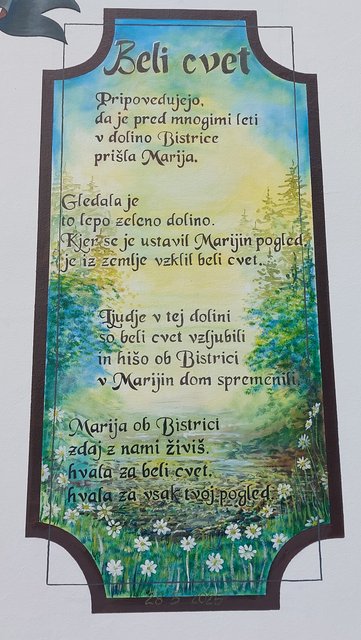 Beli cvet
Pripovedujejo,
da je pred mnogimi leti
v dolino Bistrice
prišla Marija.
Gledala je
to lepo zeleno dolino.
Kjer se je ustavil Marijin pogled,
je iz zemlje vzklil beli cvet...
Ljudje v tej dolini
so beli cvet vzljubili
in hišo ob Bistrici
v Marijin dom spremenili.
Marija ob Bistrici
zdaj z nami živiš.
hvala za beli cvet.
hvala za vsak tvoj pogled.